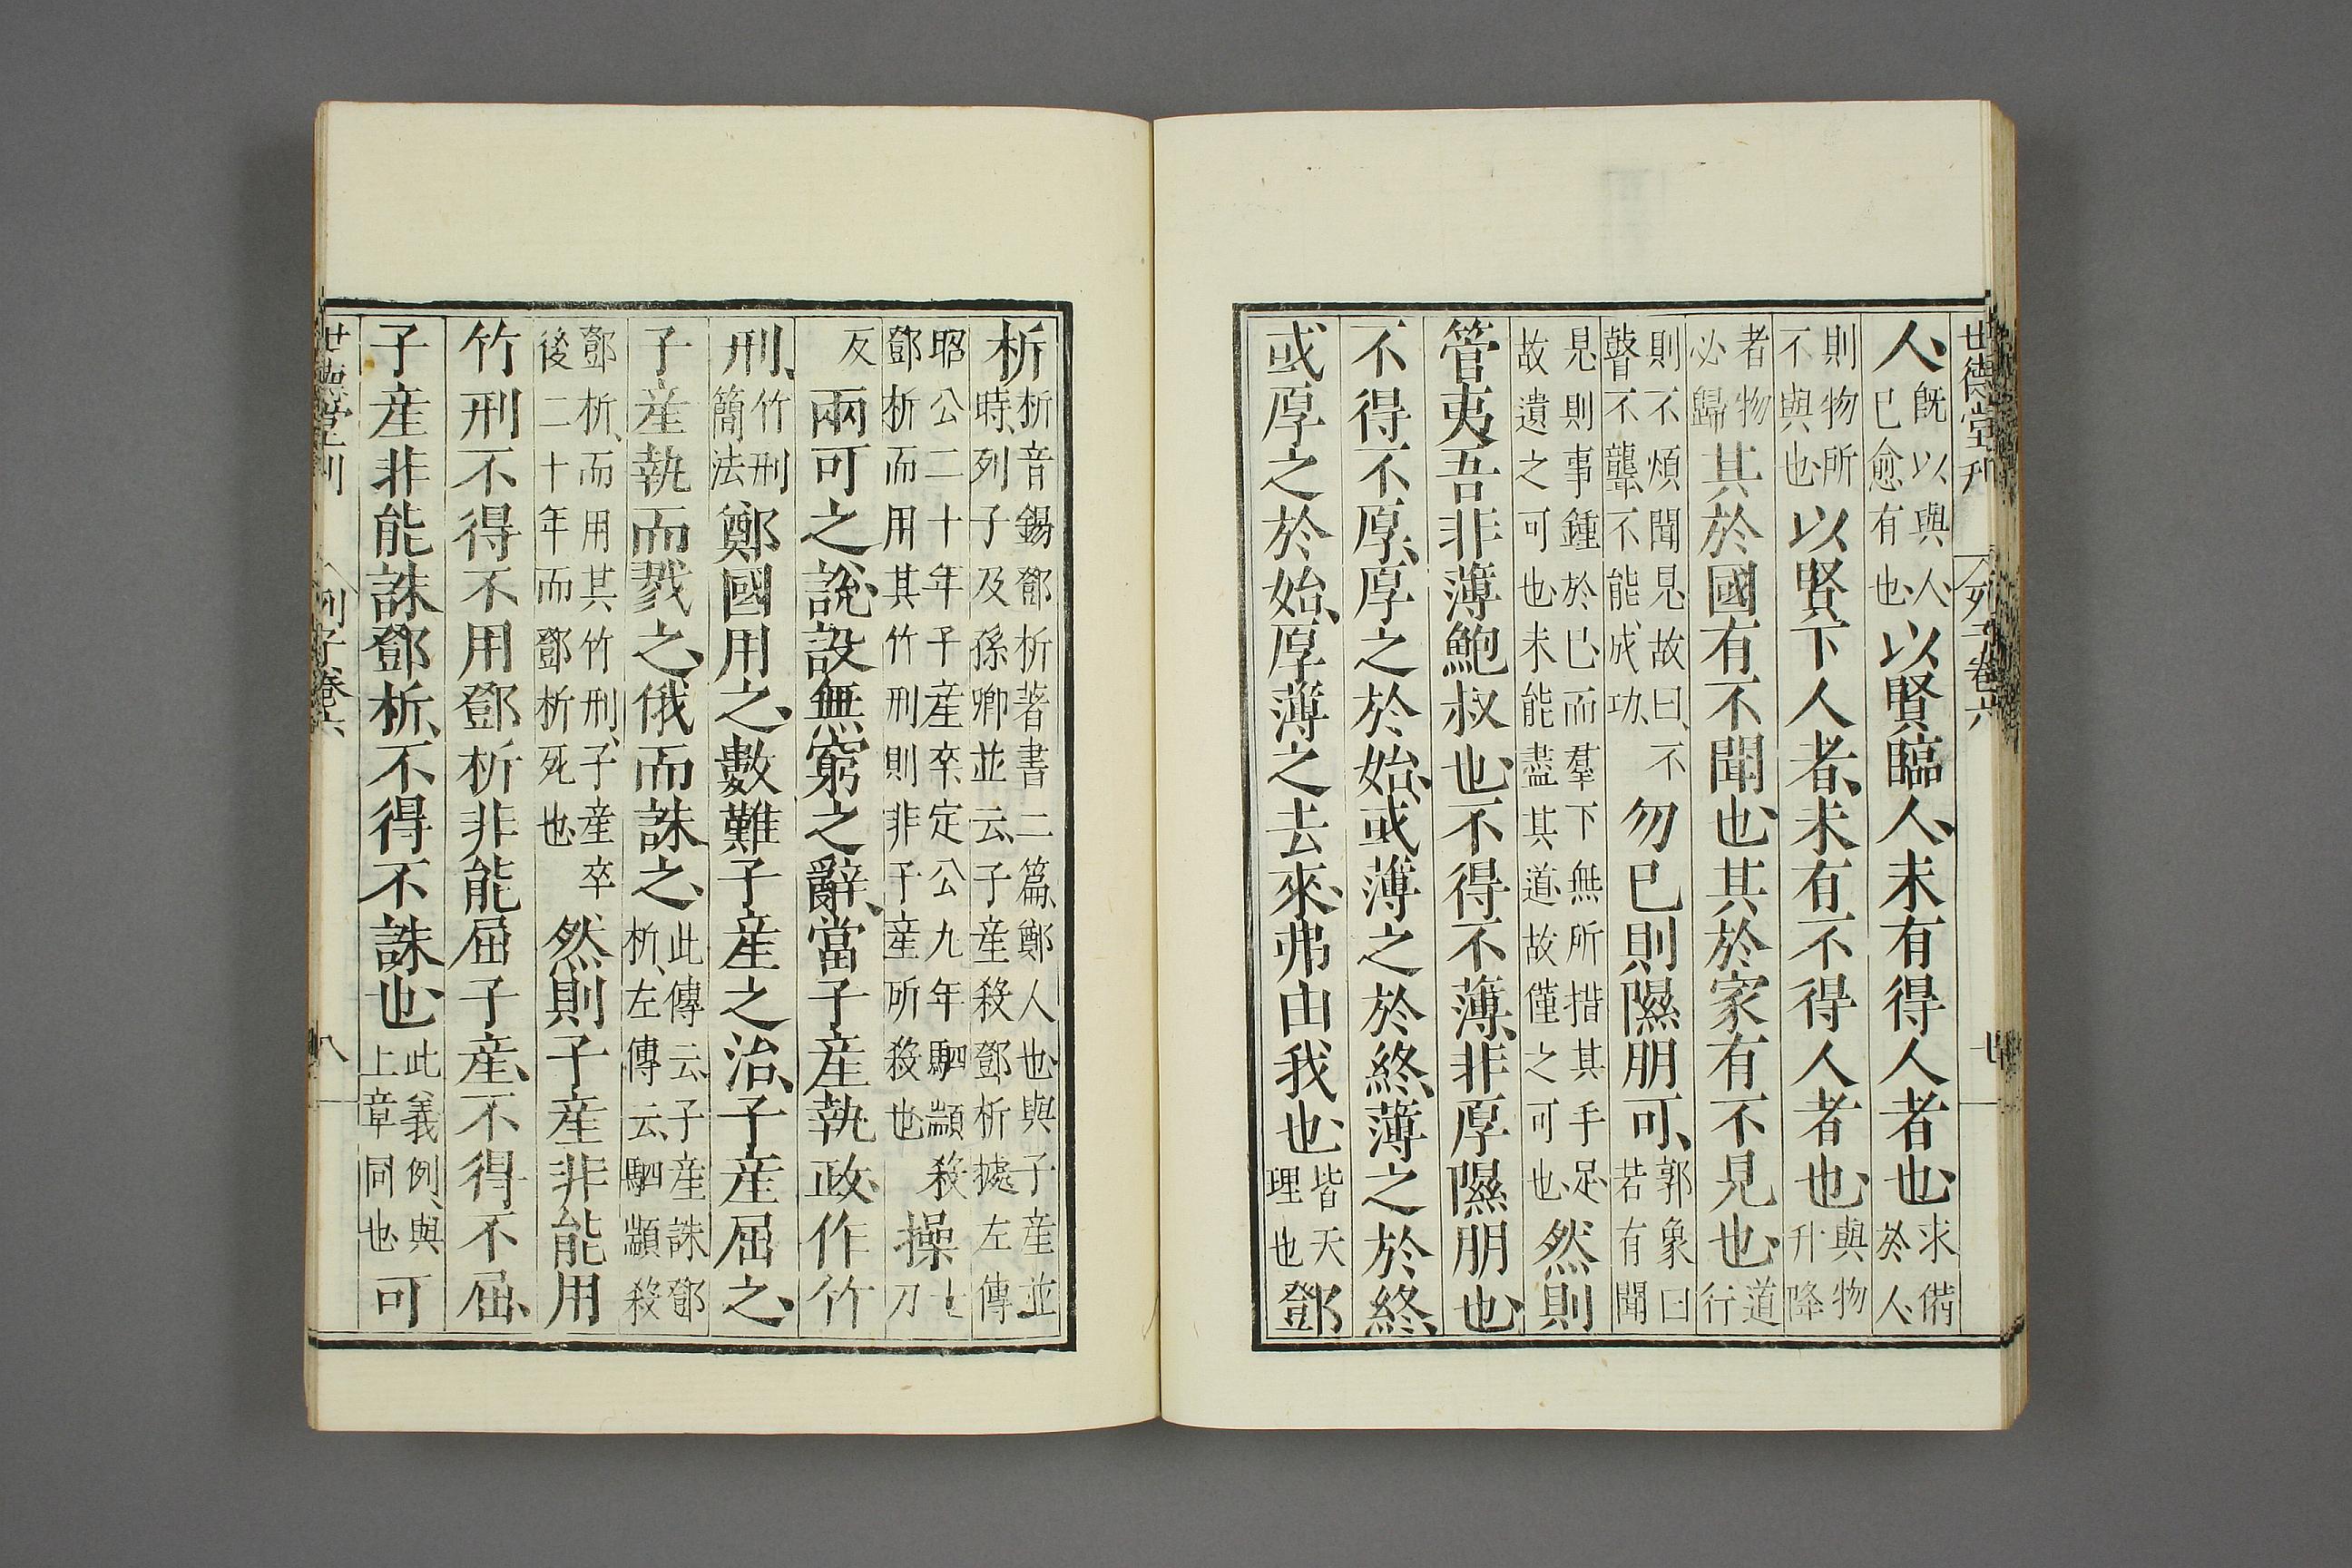 世德堂刊 列子卷六 七
人旣以與人已愈有也以賢臨人未有得人者也求備於人
則物所不與也以賢下人者未有不得人者也與物升降
者物必歸其於國有不聞也其於家有不見也道行
則不煩聞見故曰不瞽不聾不能成功勿已則隰朋可郭象曰若有聞
見則事鍾於已而羣下無所措其手足故遺之可也未能盡其道故僅之可也然則
管夷吾非薄鮑叔也不得不薄非厚隰朋也
不得不厚厚之於始或薄之於終薄之於終
或厚之於始厚薄之去來弗由我也皆天理也鄧
析析音錫鄧析著書二篇鄭人也與子産並時列子及孫卿並云子産殺鄧析據左傳
昭公二十年子産卒定公九年駟顓殺鄧析而用其竹刑則非子産所殺也操七刀
反兩可之說設無窮之辭當子産執政作竹
刑竹刑簡法鄭國用之數難子産之治子産屈之
子産執而戮之俄而誅之此傳云子産誅鄧析左傳云駟顓殺
鄧析而用其竹刑子産卒後二十年而鄧析死也然則子産非能用
竹刑不得不用鄧析非能屈子産不得不屈
子産非能誅鄧析不得不誅也此義例與上章同也可
世德堂刊 列子卷六 八